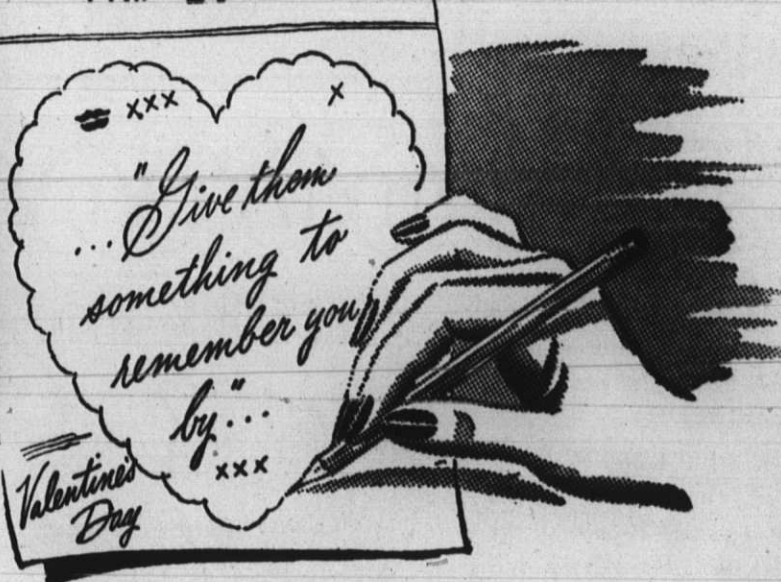 xxx x
"Give them
... something to
remember you
by"...
xxx
Valentine's
Day